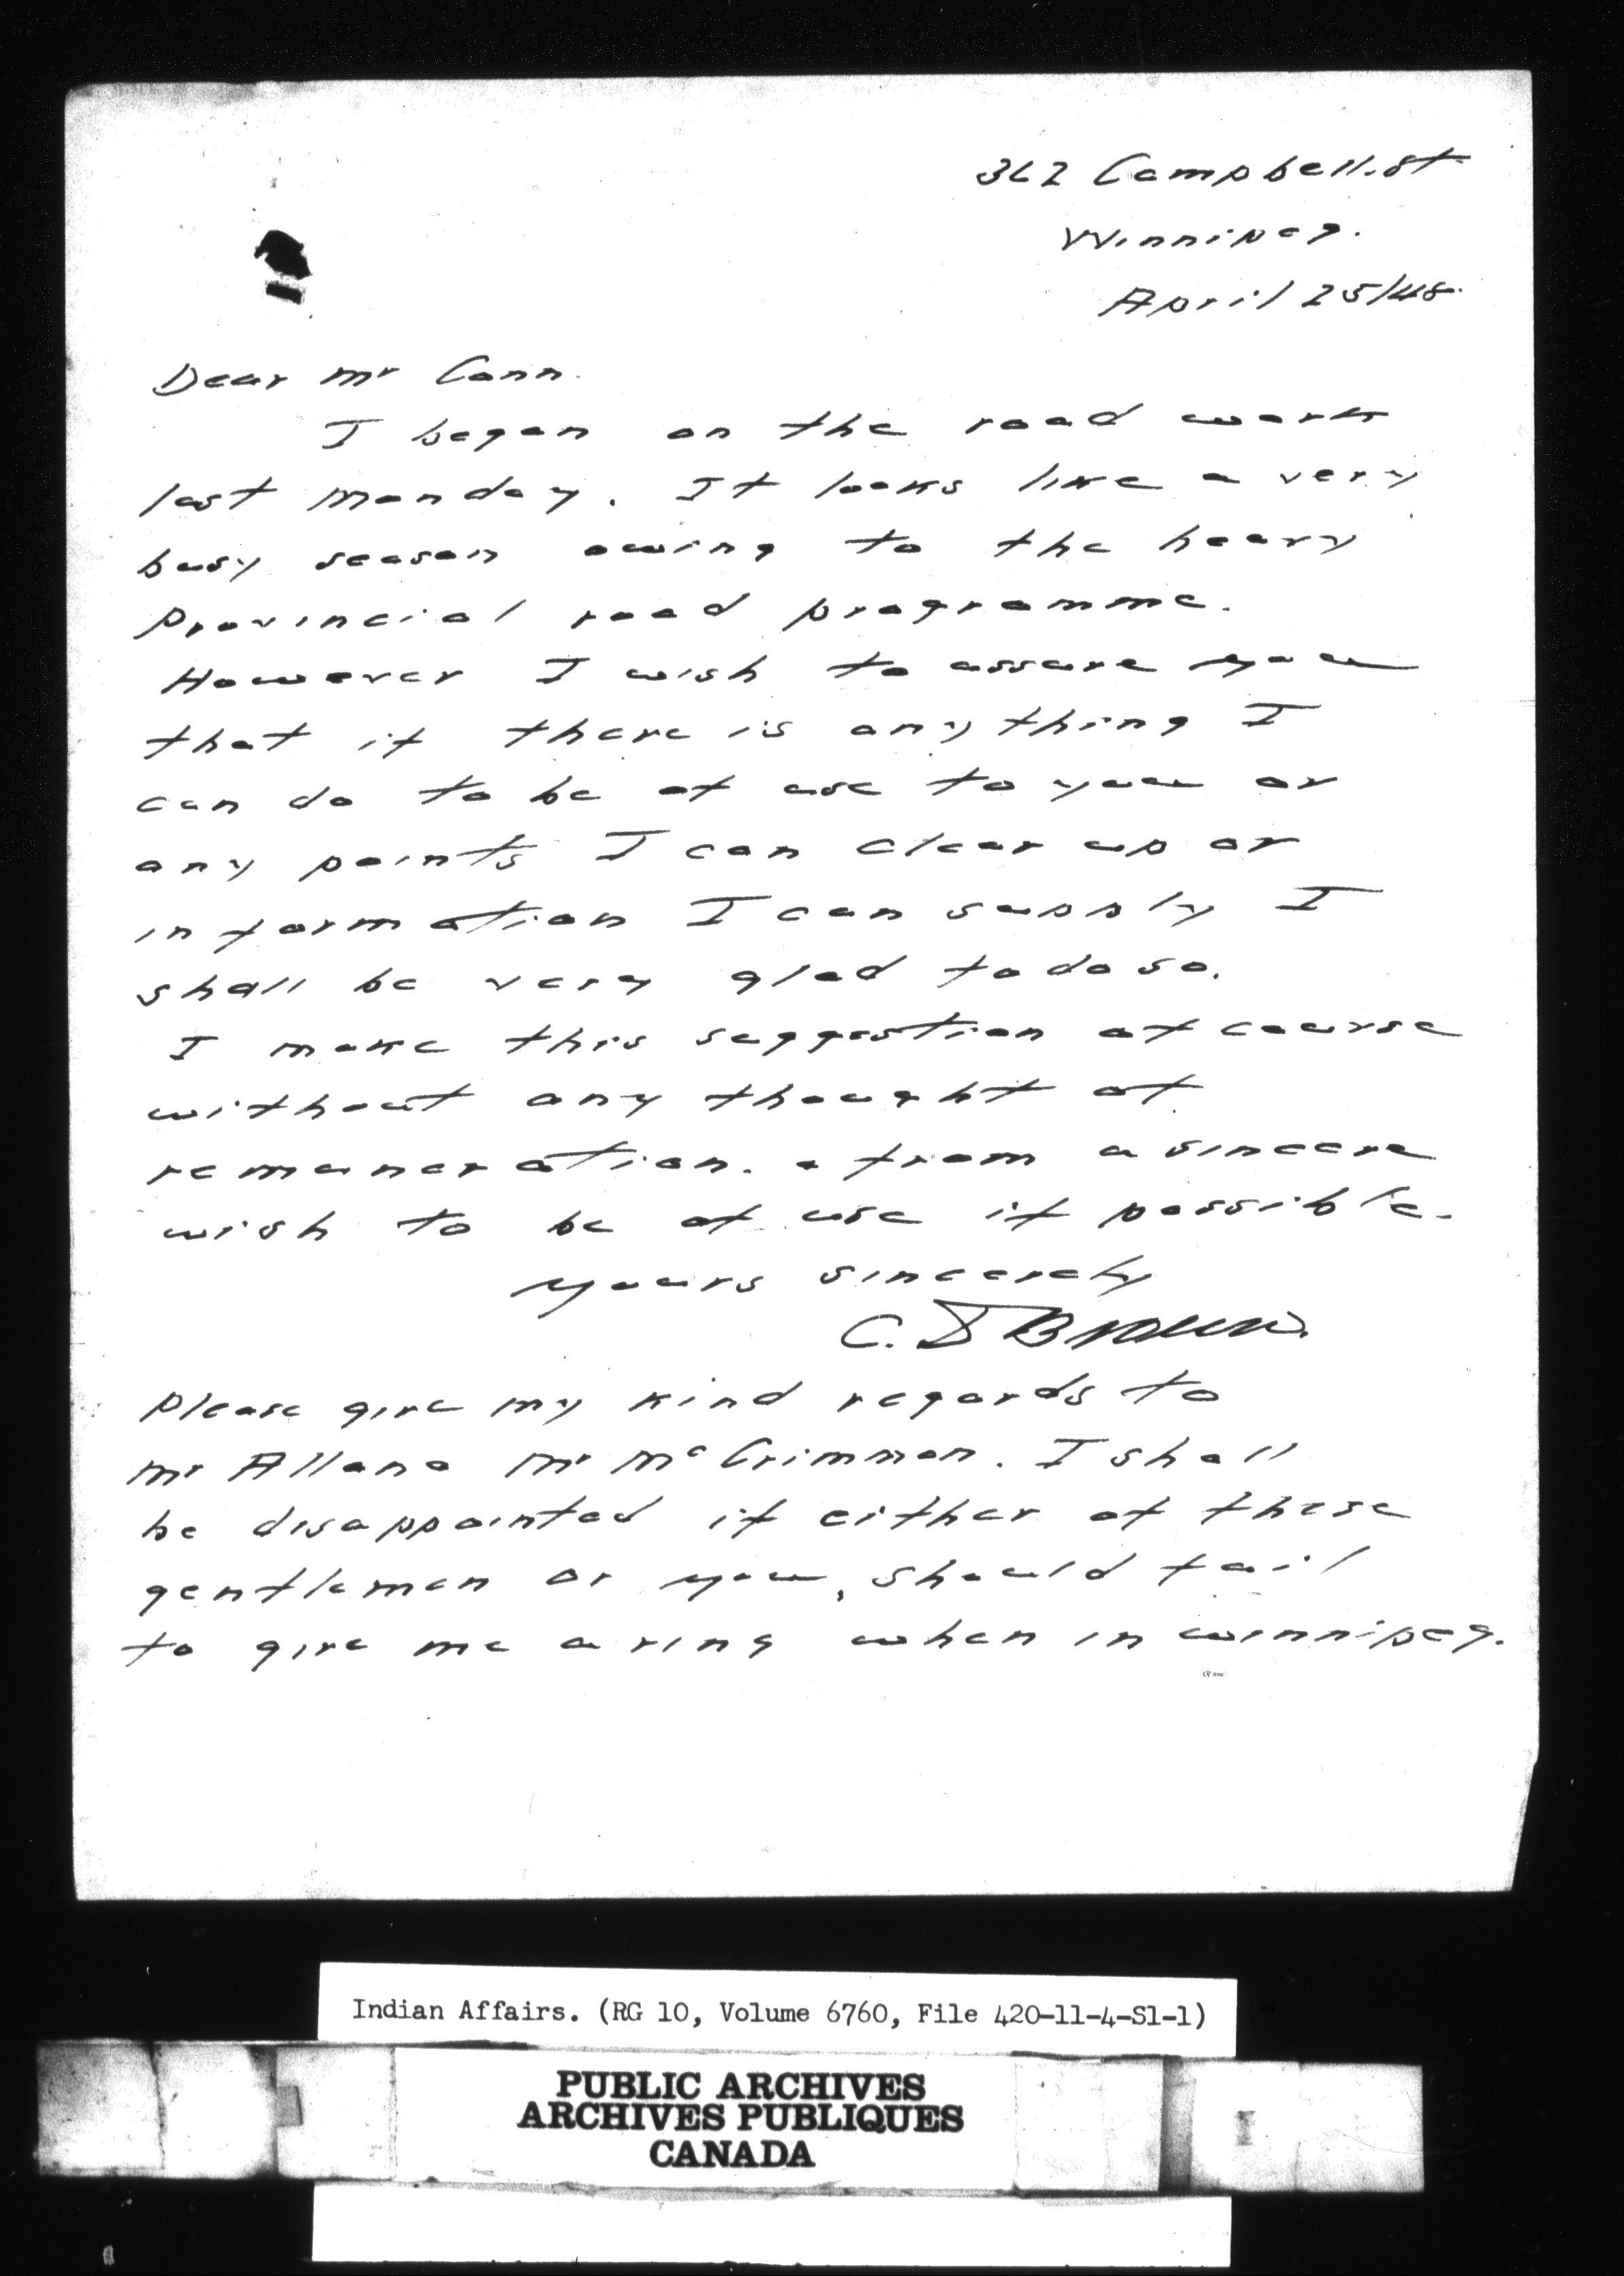 362 Campbell. St
Winnipeg.
April 25/48.
Dear Mr Conn.
I began on the road work
last Monday. It looks like a very
busy season owing to the heavy
Provincial road programme.
However I wish to assure you
that if there is anything I
can do to be of use to you or
any points I can clear up or
information I can supply I
shall be very glad to do so.
I make this suggestion of course
without any thought of
remuneration. & from a sincere
wish to be of use if possible.
yours sincerely
C. S Brown.
Please give my kind regards to
Mr Allan & Mr McCrimmon. I shall
be disappointed if either of these
gentlemen or you, should fail
to give me a ring when in Winnipeg.
Indian Affairs. (RG 10, Volume 6760, File 420-11-4-S1-1)
PUBLIC ARCHIVES
ARCHIVES PUBLIQUES
CANADA